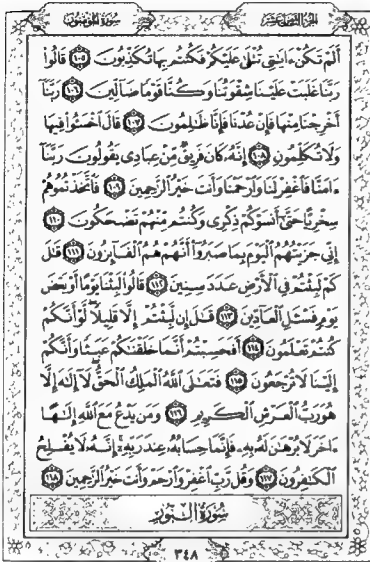 سُورَةُ المُؤْمِنُونَ
الجُزْءُ الثَّامِنَ عَشَرَ
أَلَمْ تَكُنْ ءَايَٰتِى تُتْلَىٰ عَلَيْكُمْ فَكُنتُم بِهَا تُكَذِّبُونَ ١٠٥ قَالُوا۟
رَبَّنَا غَلَبَتْ عَلَيْنَا شِقْوَتُنَا وَكُنَّا قَوْمًا ضَآلِّينَ ١٠٦ رَبَّنَآ
أَخْرِجْنَا مِنْهَا فَإِنْ عُدْنَا فَإِنَّا ظَٰلِمُونَ ١٠٧ قَالَ ٱخْسَـُٔوا۟ فِيهَا
وَلَا تُكَلِّمُونِ ١٠٨ إِنَّهُۥ كَانَ فَرِيقٌ مِّنْ عِبَادِى يَقُولُونَ رَبَّنَآ
ءَامَنَّا فَٱغْفِرْ لَنَا وَٱرْحَمْنَا وَأَنتَ خَيْرُ ٱلرَّٰحِمِينَ ١٠٩ فَٱتَّخَذْتُمُوهُمْ
سِخْرِيًّا حَتَّىٰٓ أَنسَوْكُمْ ذِكْرِى وَكُنتُم مِّنْهُمْ تَضْحَكُونَ ١١٠
إِنِّى جَزَيْتُهُمُ ٱلْيَوْمَ بِمَا صَبَرُوٓا۟ أَنَّهُمْ هُمُ ٱلْفَآئِزُونَ ١١١ قَٰلَ
كَمْ لَبِثْتُمْ فِى ٱلْأَرْضِ عَدَدَ سِنِينَ ١١٢ قَالُوا۟ لَبِثْنَا يَوْمًا أَوْ بَعْضَ
يَوْمٍ فَسْـَٔلِ ٱلْعَآدِّينَ ١١٣ قَٰلَ إِن لَّبِثْتُمْ إِلَّا قَلِيلًا لَّوْ أَنَّكُمْ
كُنتُمْ تَعْلَمُونَ ١١٤ أَفَحَسِبْتُمْ أَنَّمَا خَلَقْنَٰكُمْ عَبَثًا وَأَنَّكُمْ
إِلَيْنَا لَا تُرْجَعُونَ ١١٥ فَتَعَٰلَى ٱللَّهُ ٱلْمَلِكُ ٱلْحَقُّ لَآ إِلَٰهَ إِلَّا
هُوَ رَبُّ ٱلْعَرْشِ ٱلْكَرِيمِ ١١٦ وَمَن يَدْعُ مَعَ ٱللَّهِ إِلَٰهًا
ءَاخَرَ لَا بُرْهَٰنَ لَهُۥ بِهِۦ فَإِنَّمَا حِسَابُهُۥ عِندَ رَبِّهِۦٓ إِنَّهُۥ لَا يُفْلِحُ
ٱلْكَٰفِرُونَ ١١٧ وَقُل رَّبِّ ٱغْفِرْ وَٱرْحَمْ وَأَنتَ خَيْرُ ٱلرَّٰحِمِينَ ١١٨
سُورَةُ النُّورِ
٣٤٨